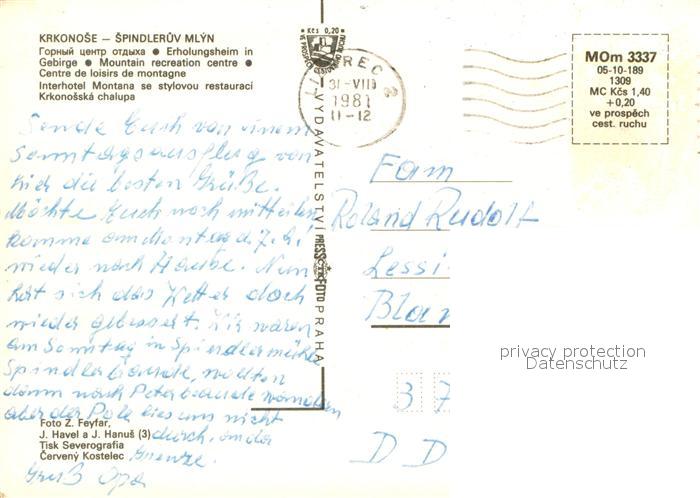 KRKONOŠE — ŠPINDLERŮV MLÝN
Горный центр отдыха ● Erholungsheim in
Gebirge ● Mountain recreation centre ●
Centre de loisirs de montagne
Interhotel Montana se stylovou restaurací
Krkonošská chalupa
Sende Euch von einem
Sonntagsausflug von
hier die besten Grüße.
Möchte Euch noch mitteilen
komme am Montag d. 7.9.
wieder nach Hause. Nun
hat sich das Wetter doch
wieder gebessert. Wir waren
am Sonntag in Spindlermühle
Spindlerbaude, wollten
dann nach Peterbaude wandern
aber der Pole lies uns nicht
durch, an der
Grenze.
Gruß Opa
Foto Z. Feyfar,
J. Havel a J. Hanuš (3)
Tisk Severografia
Červený Kostelec
VYDAVATELSTVÍ PRESSFOTO PRAHA
Kčs 0,20
31-VIII
1981
11-12
MOm 3337
05-10-189
1309
MC Kčs 1,40
+0,20
ve prospěch
cest. ruchu
Fam
Roland Rudolf
Lessi
Blan
3 7
D D
privacy protection
Datenschutz